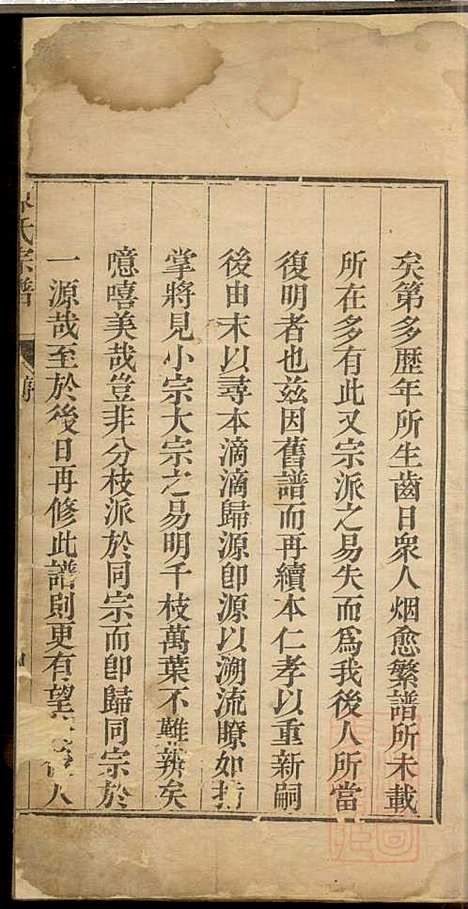 矣第多歷年所生齒日衆人烟愈繁譜所未載
所在多有此又宗派之易失而爲我後人所當
復明者也玆因舊譜而再續本仁孝以重新嗣
後由末以尋本滴滴歸源卽源以溯流瞭如指
掌將見小宗大宗之易明千枝萬葉不難辨矣
噫嘻美哉豈非分枝派於同宗而卽歸同宗於
一源哉至於後日再修此譜則更有望人
氏宗譜
序